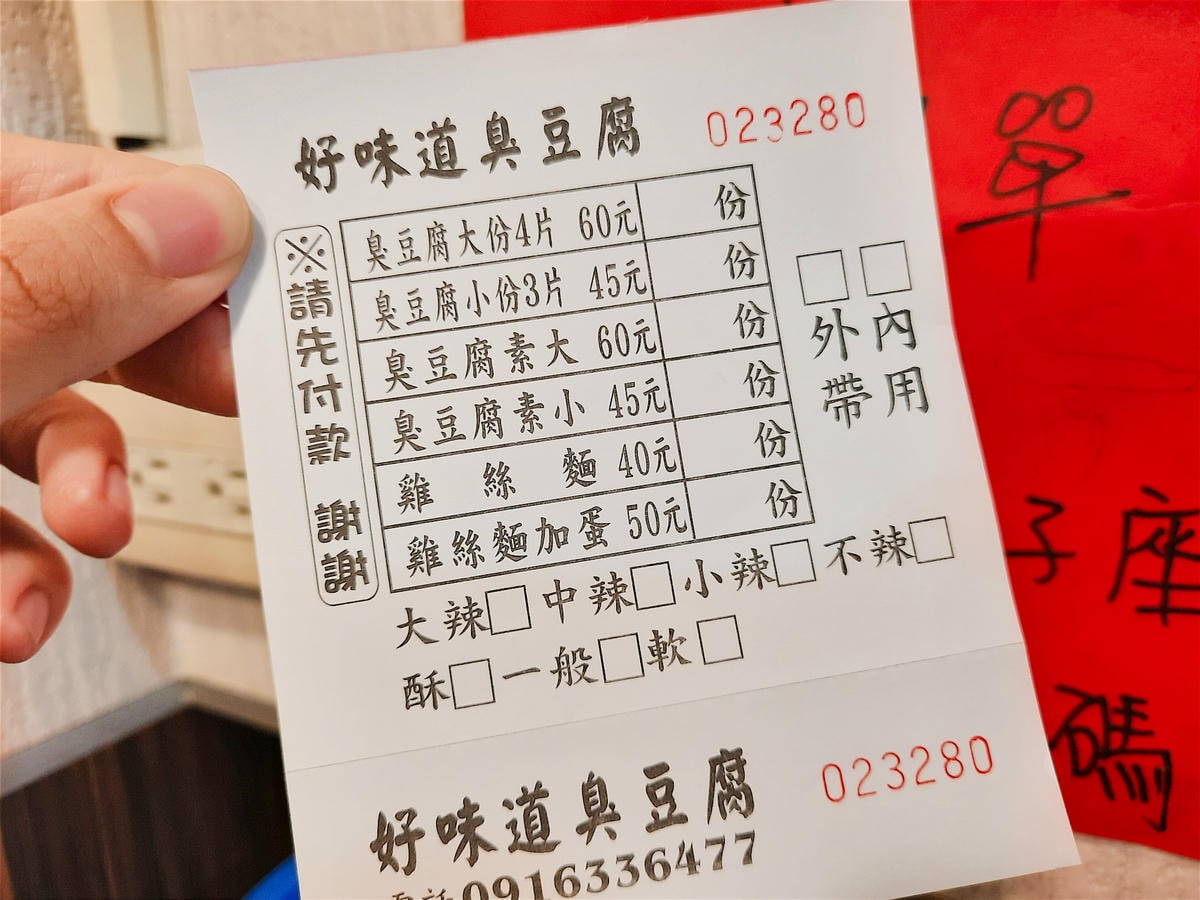 好味道臭豆腐 023280
※請先付款 謝謝
臭豆腐大份4片 60元 份
臭豆腐小份3片 45元 份
臭豆腐素大 60元 份
臭豆腐素小 45元 份
雞絲麵 40元 份
雞絲麵加蛋 50元 份
□外帶 □內用
大辣□ 中辣□ 小辣□ 不辣□
酥□ 一般□ 軟□
好味道臭豆腐 023280
電話0916336477
單
子座
碼